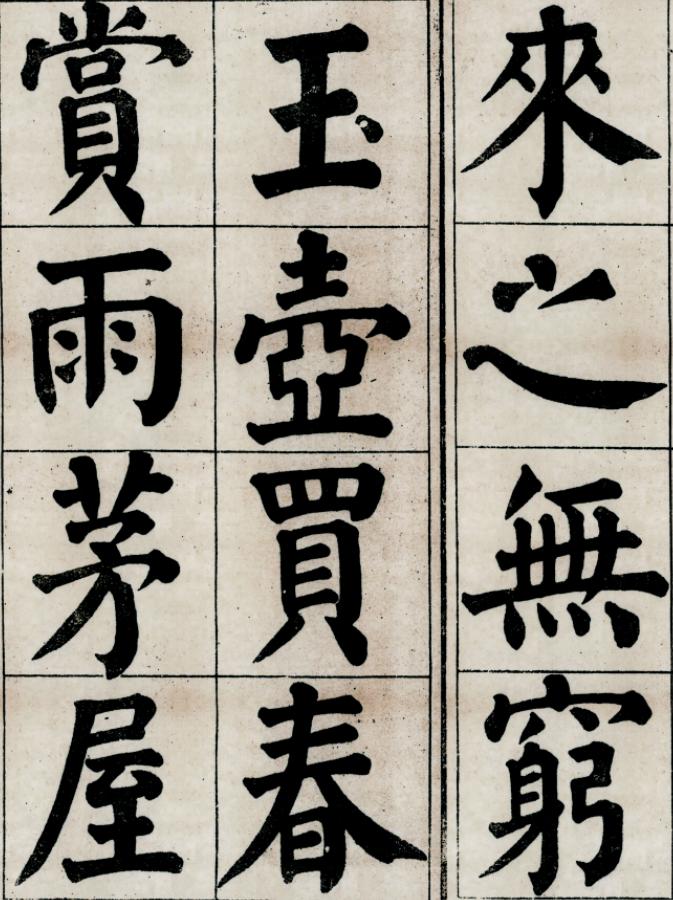 來之無窮
玉壺買春
賞雨茅屋